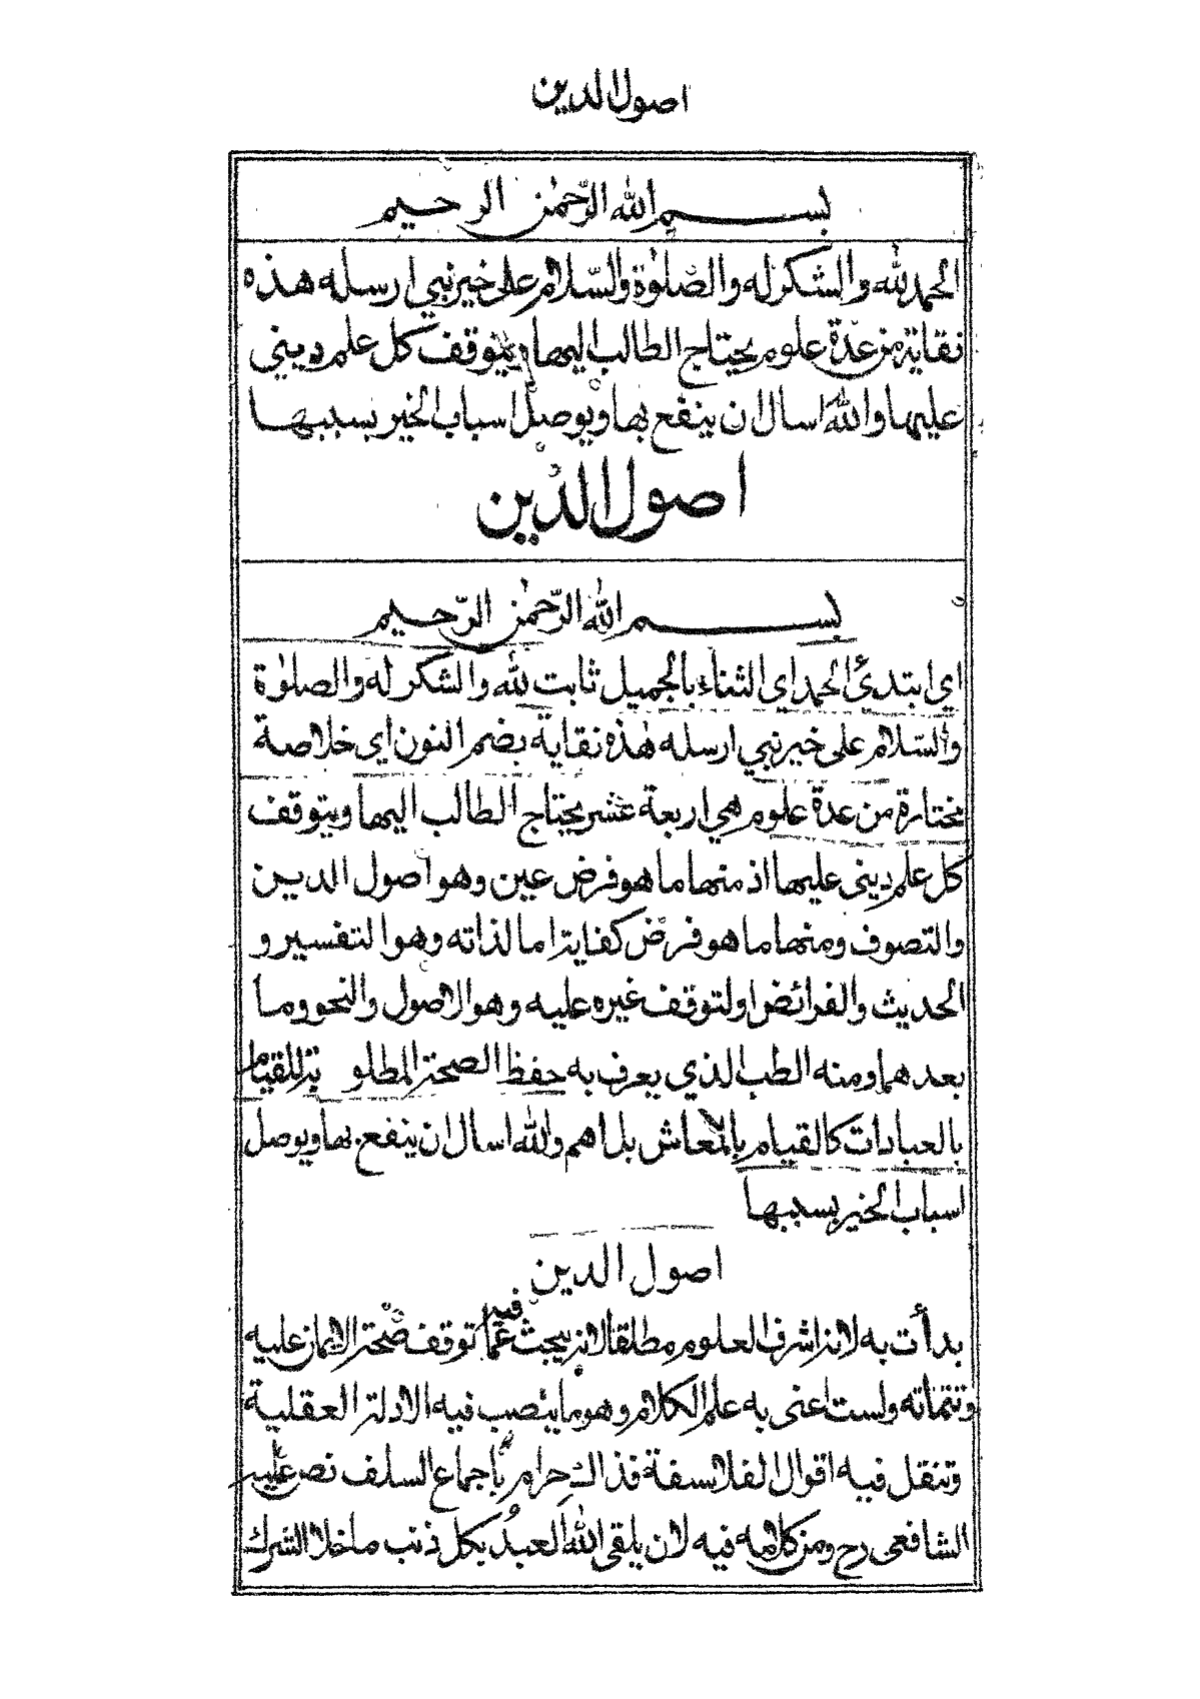 اصول الدين
بسم الله الرحمٰن الرحيم
الحمد لله والشكر له والصلوٰة والسّلام على خير نبي ارسله هذه
نقاية من عدة علوم يحتاج الطالب اليها ويتوقف كل علم ديني
عليها والله اسال ان ينفع بها ويوصل اسباب الخير بسببها
اصول الدين
بسم الله الرحمٰن الرحيم
اي ابتدئ الحمد اي الثناء بالجميل ثابت لله والشكر له والصلوٰة
والسّلام على خير نبي ارسله هٰذه نقاية بضم النون اى خلاصة
مختارة من عدة علوم هي اربعة عشر يحتاج الطالب اليها ويتوقف
كل علم دينى عليها اذ منها ما هو فرض عين وهو اصول الدين
والتصوف ومنها ما هو فرض كفاية اما لذاته وهو التفسير و
الحديث والفرائض او لتوقف غيره عليه وهو الاصول والنحو وما
بعدهما ومنه الطب الذي يعرف به حفظ الصحة المطلوبة للقيام
بالعبادات كالقيام بالمعاش بل اهم والله اسال ان ينفع بها ويوصل
اسباب الخير بسببها
اصول الدين
بدأت به لانه اشرف العلوم مطلقا لانه يبحث فيه عما توقف صحة الايمان عليه
وتتماته ولست اعنى به علم الكلام وهو ما ينصب فيه الادلة العقلية
وتنقل فيه اقوال الفلاسفة فذاك حرام باجماع السلف نص عليه
الشافعى رح ومن كلامه فيه لان يلقى الله العبد بكل ذنب ما خلا الشرك